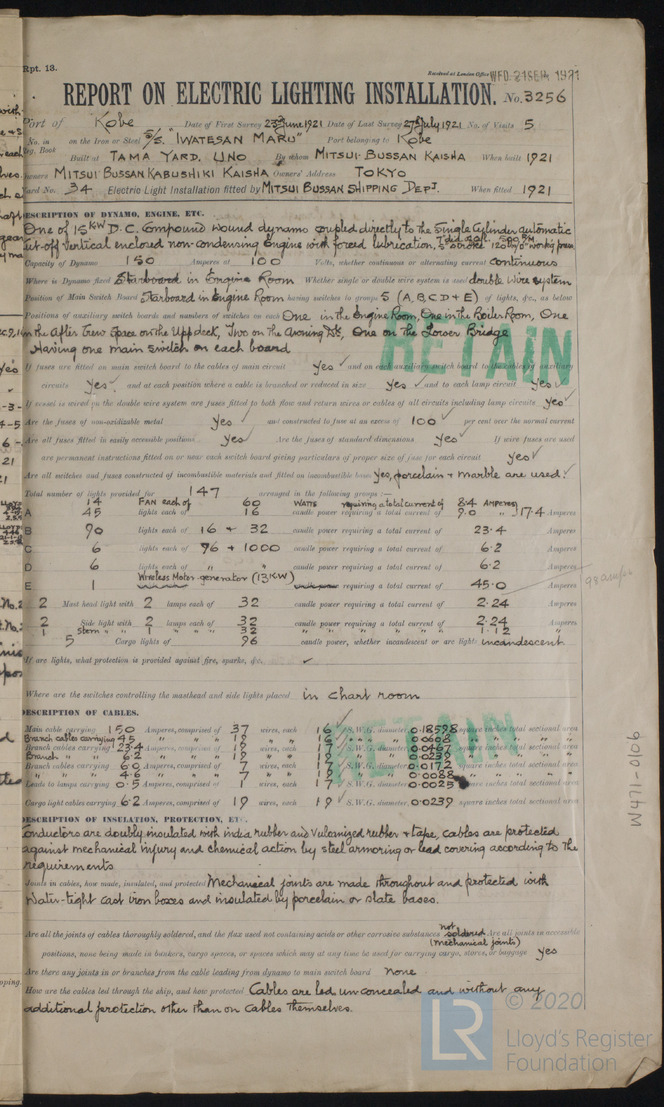 Rpt. 13.
Received at London Office WED. 21 SEP 1921
REPORT ON ELECTRIC LIGHTING INSTALLATION. No. 3256
Port of Kobe Date of First Survey 23rd June 1921 Date of Last Survey 27th July 1921 No. of Visits 5
No. in on the Iron or Steel S/S. "IWATESAN MARU" Port belonging to Kobe
Reg. Book Built at TAMA YARD. UNO By whom MITSUI-BUSSAN KAISHA When built 1921
Owners MITSUI BUSSAN KABUSHIKI KAISHA Owners' Address TOKYO
Yard No. 34 Electric Light Installation fitted by MITSUI BUSSAN SHIPPING DEPT. When fitted 1921
DESCRIPTION OF DYNAMO, ENGINE, ETC.
One of 15 KW D.C. Compound wound dynamo coupled directly to the single Cylinder automatic
cut-off vertical enclosed non-condensing Engine with forced lubrication, 5" stroke 120 lbs/□" working press.
Capacity of Dynamo 150 Amperes at 100 Volts, whether continuous or alternating current continuous
Where is Dynamo fixed Starboard in Engine Room Whether single or double wire system is used double wire system
Position of Main Switch Board Starboard in Engine Room having switches to groups 5 (A, B, C, D + E) of lights, &c., as below
Positions of auxiliary switch boards and numbers of switches on each One in the Engine Room, One in the Boiler Room, One
in the After Crew space on the Upp deck, Two on the Awning Dk, One on the Lower Bridge
Having one main switch on each board
RETAIN
If fuses are fitted on main switch board to the cables of main circuit Yes ✓ and on each auxiliary switch board to the cables of auxiliary
circuits Yes ✓ and at each position where a cable is branched or reduced in size Yes ✓ and to each lamp circuit Yes ✓
If vessel is wired on the double wire system are fuses fitted to both flow and return wires or cables of all circuits including lamp circuits Yes ✓
Are the fuses of non-oxidizable metal Yes ✓ and constructed to fuse at an excess of 100 ✓ per cent over the normal current
Are all fuses fitted in easily accessible positions Yes ✓ Are the fuses of standard dimensions Yes ✓ If wire fuses are used
are permanent instructions fitted on or near each switch board giving particulars of proper size of fuse for each circuit Yes ✓
Are all switches and fuses constructed of incombustible materials and fitted on incombustible bases Yes, porcelain + marble are used. ✓
Total number of lights provided for 147 arranged in the following groups :—
14 FAN each of 60 WATTS requiring a total current of 8.4 AMPERES
A 45 lights each of 16 candle power requiring a total current of 9.0 " 17.4 Amperes
B 90 lights each of 16 + 32 candle power requiring a total current of 23.4 Amperes
C 6 lights each of 96 + 1000 candle power requiring a total current of 6.2 Amperes
D 6 lights each of " " candle power requiring a total current of 6.2 Amperes
E 1 Wireless Motor-generator (13KW) requiring a total current of 45.0 Amperes 98 amperes
2 Mast head light with 2 lamps each of 32 candle power requiring a total current of 2.24 Amperes
2 Side light with 2 lamps each of 32 candle power requiring a total current of 2.24 Amperes
1 Stern " " 1 " " " 32 " " " " " " 1.12 "
5 Cargo lights of 96 candle power, whether incandescent or arc lights incandescent
If arc lights, what protection is provided against fire, sparks, &c. ✓
Where are the switches controlling the masthead and side lights placed in Chart room
DESCRIPTION OF CABLES.
Main cable carrying 150 Amperes, comprised of 37 wires, each 16 ✓ S.W.G. diameter, 0.18598 square inches total sectional area
Branch cables carrying 45 " " " 19 " " 16 " " 0.0608 " " " "
Branch cables carrying 23.4 Amperes, comprised of 19 wires, each 17 S.W.G. diameter, 0.0467 square inches total sectional area
Branch " " 6.2 " " " 19 " " 19 " " 0.0239 " " " "
Branch cables carrying 6.0 Amperes, comprised of 7 wires, each 17 S.W.G. diameter, 0.0172 square inches total sectional area
" " " 4.6 " " " 7 " " 19 " " 0.0088 " " " "
Leads to lamps carrying 0.5 Amperes, comprised of 1 wires, each 17 S.W.G. diameter, 0.0025 square inches total sectional area
Cargo light cables carrying 6.2 Amperes, comprised of 19 wires, each 19 ✓ S.W.G. diameter, 0.0239 square inches total sectional area
RETAIN
W471-0106
DESCRIPTION OF INSULATION, PROTECTION, ETC.
Conductors are doubly insulated with india rubber and vulcanized rubber + tape, cables are protected
against mechanical injury and chemical action by steel armoring or lead covering according to the
requirements
Joints in cables, how made, insulated, and protected Mechanical joints are made throughout and protected with
water-tight cast iron boxes and insulated by porcelain or slate bases.
Are all the joints of cables thoroughly soldered, and the flux used not containing acids or other corrosive substances not soldered (mechanical joints) Are all joints in accessible
positions, none being made in bunkers, cargo spaces, or spaces which may at any time be used for carrying cargo, stores, or baggage yes
Are there any joints in or branches from the cable leading from dynamo to main switch board none
How are the cables led through the ship, and how protected Cables are led unconcealed and without any
additional protection other than on cables themselves.
LR © 2020
Lloyd's Register
Foundation